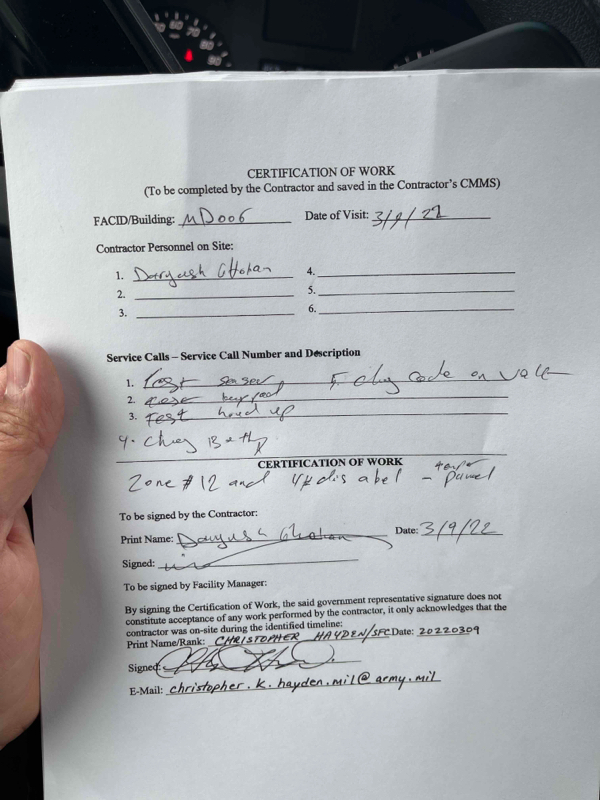 60 70
80
90
CERTIFICATION OF WORK
(To be completed by the Contractor and saved in the Contractor's CMMS)
FACID/Building: MD006 Date of Visit: 3/9/22
Contractor Personnel on Site:
1. Daryush 4.
2. 5.
3. 6.
Service Calls – Service Call Number and Description
1. Test sensor 5. chg code on Valt
2. Test key pad
3. Test hold up
4. Chg
CERTIFICATION OF WORK
Zone #12 and disabel – panel
To be signed by the Contractor:
Print Name: Daryush Date: 3/9/22
Signed:
To be signed by Facility Manager:
By signing the Certification of Work, the said government representative signature does not
constitute acceptance of any work performed by the contractor, it only acknowledges that the
contractor was on-site during the identified timeline:
Print Name/Rank: CHRISTOPHER HAYDEN/SFC Date: 20220309
Signed:
E-Mail: christopher.k.hayden.mil@army.mil